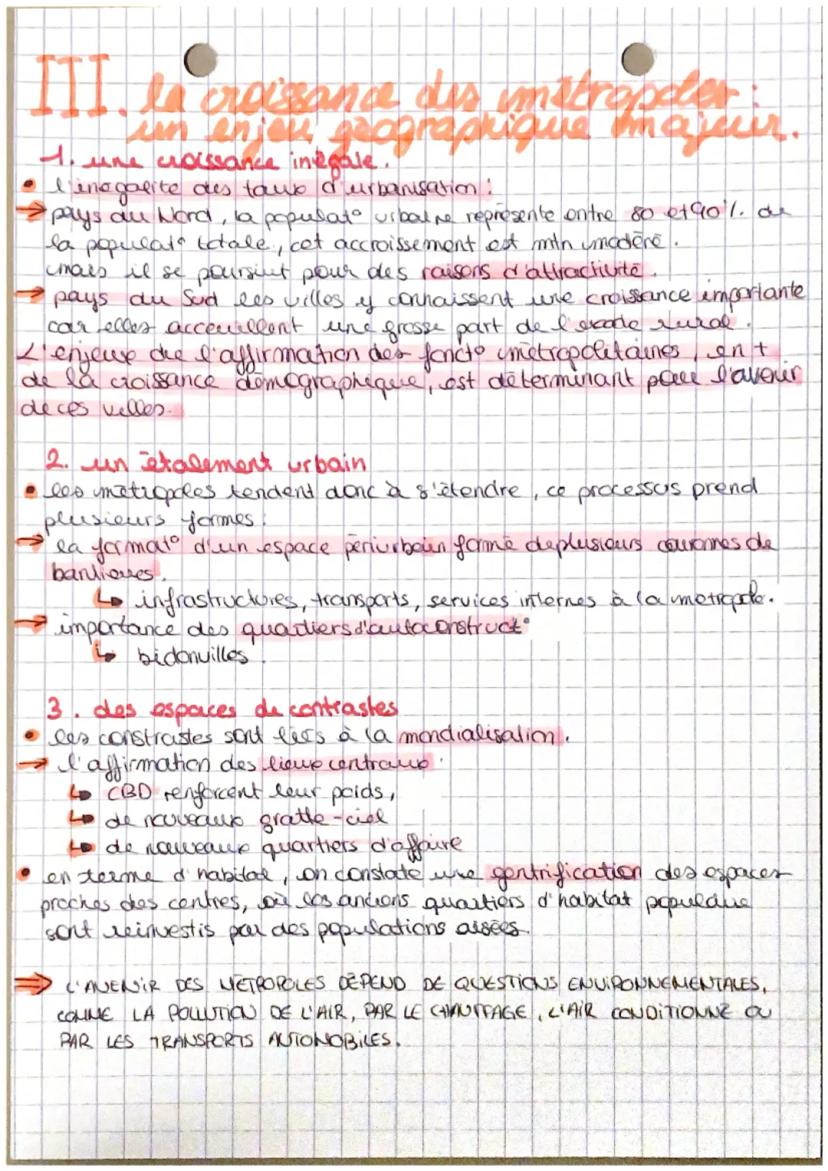 III. la croissance des métropoles :
un enjeu géographique majeur.
1. une croissance inégale.
• l'inégalité des taux d'urbanisation :
→ pays du Nord, la populat° urbaine représente entre 80 et 90 % de
la populat° totale, cet accroissement est mtn modéré.
mais il se poursuit pour des raisons d'attractivité.
→ pays du Sud les villes y connaissent une croissance importante
car elles acceuillent une grosse part de l'exode rural.
L'enjeux de l'affirmation des fonct° métropolitaines, en +
de la croissance démographique, est déterminant pour l'avenir
de ces villes.
2. un étalement urbain
• les métropoles tendent donc à s'étendre, ce processus prend
plusieurs formes :
→ la format° d'un espace périurbain formé de plusieurs couronnes de
banlieues.
↳ infrastructures, transports, services internes à la métropole.
→ importance des quartiers d'autoconstruct°
↳ bidonvilles.
3. des espaces de contrastes
• les constrastes sont liés à la mondialisation.
→ l'affirmation des lieux centraux.
↳ CBD renforcent leur poids,
↳ de nouveaux gratte-ciel
↳ de nouveaux quartiers d'affaire
• en terme d'habitat, on constate une gentrification des espaces
proches des centres, où les anciens quartiers d'habitat populaire
sont réinvestis par des populations aisées.
⇒ L'AVENIR DES MÉTROPOLES DÉPEND DE QUESTIONS ENVIRONNEMENTALES,
COMME LA POLLUTION DE L'AIR, PAR LE CHAUFFAGE, L'AIR CONDITIONNÉ OU
PAR LES TRANSPORTS AUTOMOBILES.